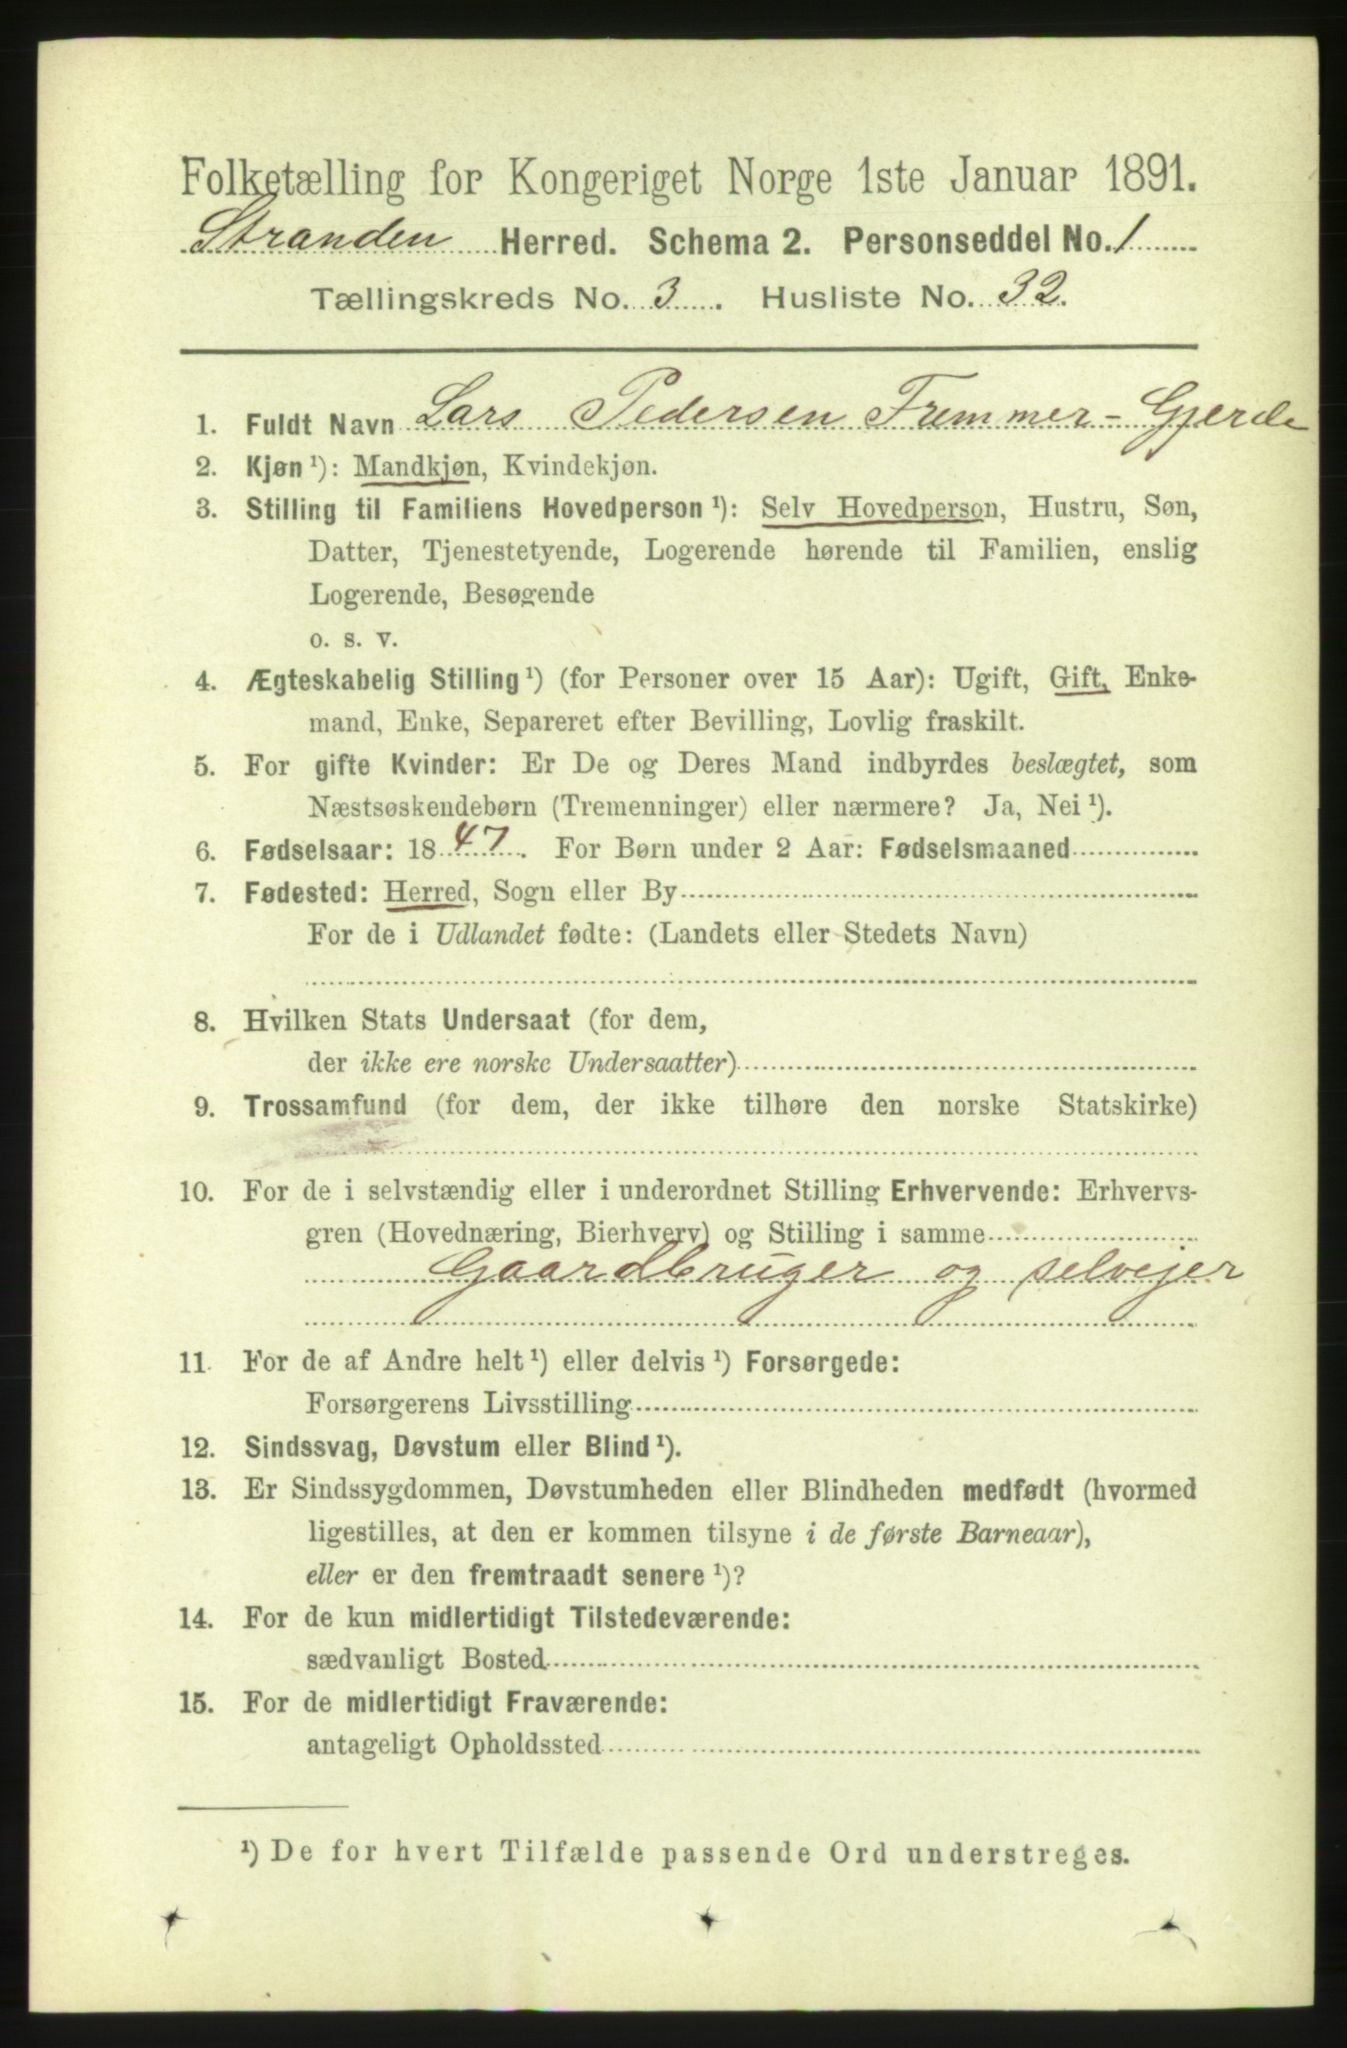 Folketælling for Kongeriget Norge 1ste Januar 1891.
Stranden Herred. Schema 2. Personseddel No. 1
Tællingskreds No. 3. Husliste No. 32.
1. Fuldt Navn Lars Pedersen Fremmer-Gjerde
2. Kjøn¹): Mandkjøn, Kvindekjøn.
3. Stilling til Familiens Hovedperson¹): Selv Hovedperson, Hustru, Søn,
Datter, Tjenestetyende, Logerende hørende til Familien, enslig
Logerende, Besøgende
o. s. v.
4. Ægteskabelig Stilling¹) (for Personer over 15 Aar): Ugift, Gift, Enke-
mand, Enke, Separeret efter Bevilling, Lovlig fraskilt.
5. For gifte Kvinder: Er De og Deres Mand indbyrdes beslægtet, som
Næstsøskendebørn (Tremenninger) eller nærmere? Ja, Nei¹).
6. Fødselsaar: 1847. For Børn under 2 Aar: Fødselsmaaned
7. Fødested: Herred, Sogn eller By
For de i Udlandet fødte: (Landets eller Stedets Navn)
8. Hvilken Stats Undersaat (for dem,
der ikke ere norske Undersaatter)
9. Trossamfund (for dem, der ikke tilhøre den norske Statskirke)
10. For de i selvstændig eller i underordnet Stilling Erhvervende: Erhvervs-
gren (Hovednæring, Bierhverv) og Stilling i samme
Gaardbruger og selvejer
11. For de af Andre helt¹) eller delvis¹) Forsørgede:
Forsørgerens Livsstilling
12. Sindssvag, Døvstum eller Blind¹).
13. Er Sindssygdommen, Døvstumheden eller Blindheden medfødt (hvormed
ligestilles, at den er kommen tilsyne i de første Barneaar),
eller er den fremtraadt senere¹)?
14. For de kun midlertidigt Tilstedeværende:
sædvanligt Bosted
15. For de midlertidigt Fraværende:
antageligt Opholdssted
¹) De for hvert Tilfælde passende Ord understreges.